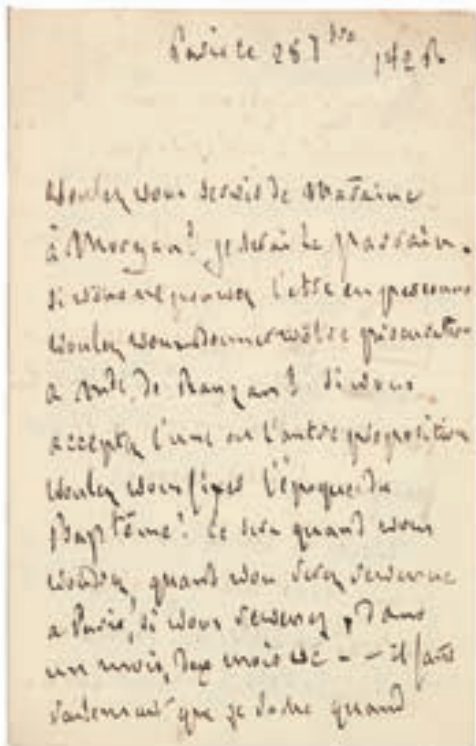 Paris ce 28 7bre 1828
Voulez vous servir de Maraine
à Morgan? je serai le parrain.
si vous ne pouvez l'être en personne
Voulez vous donner votre procuration
a Mde. de Rauzan? si vous
acceptez l'une ou l'autre proposition
Voulez vous fixer l'époque du
Baptême? ce sera quand vous
voudrez, quand vous serez revenue
a Paris, si vous revenez, dans
un mois, deux mois &c - - il faut
seulement que je sache quand